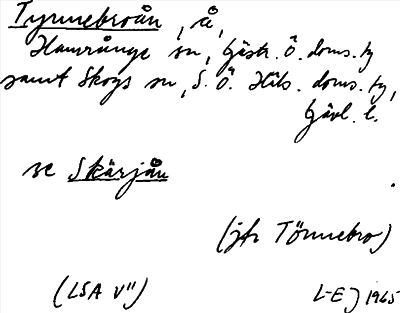 Tynnebroån, å,
Hamrånge sn, Gästr. Ö. doms. tg
samt Skogs sn, S. Ö. Häls. doms. tg,
Gävl. l.
se Skärjån
(jfr Tönnebro)
(LSA V") L-EJ 1965